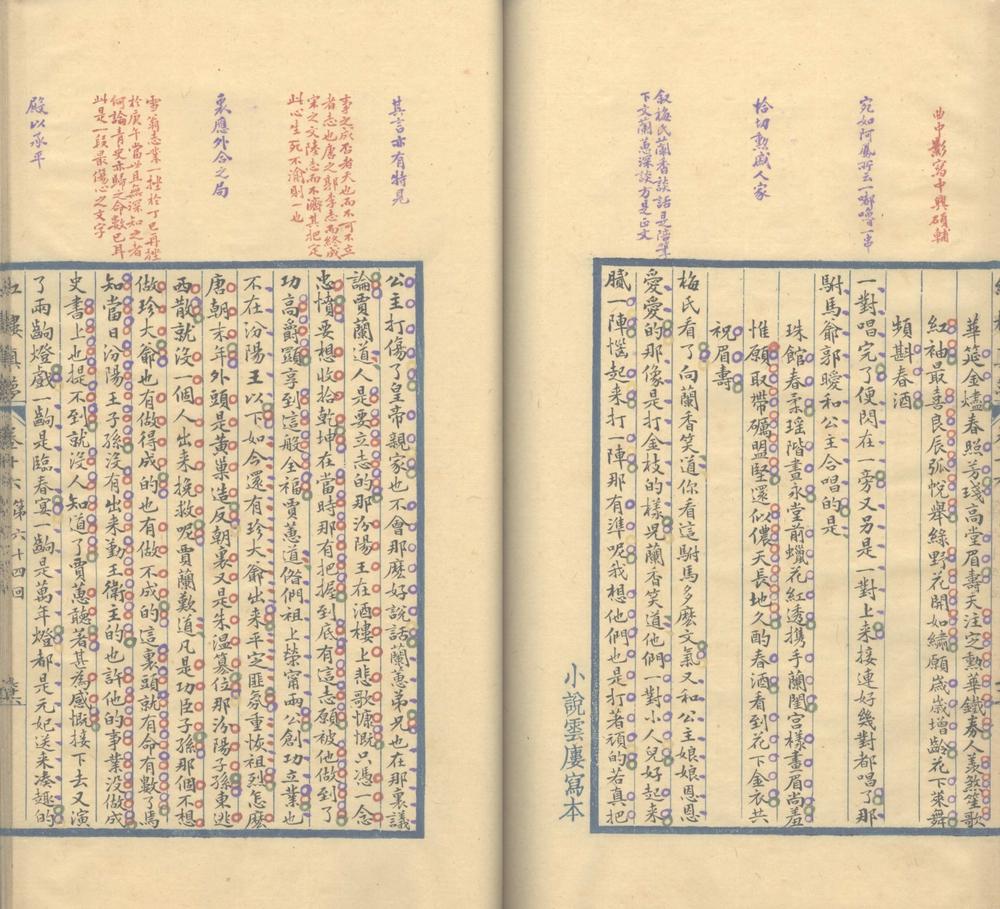 曲中影寫中興碩輔
宛如阿鳳所云一嘟嚕一串
恰切勲戚人家
敘梅氏蘭香談話是陪筆
下文蘭蕙深談方是正文
華筵金燼春照芳璲高堂眉壽天注定勲華鐵券人羨煞笙歌
紅袖最喜良辰弧帨舉綠野花開如繡願歲歲增齡花下萊舞
頻斟春酒
一對唱完了便閃在一旁又另是一對上来接連好幾對都唱了那
駙馬爺郭曖和公主合唱的是
珠館春柔瑶階晝永堂前蠟花紅透携手蘭閨宫様畫眉尚羞
惟願取帶礪盟堅還似儂天長地久酌春酒看到花下金衣共
祝眉壽
梅氏看了向蘭香笑道你看這駙馬多麽文氣又和公主娘娘恩恩
愛愛的那像是打金枝的樣兒蘭香笑道他們一對小人兒好起来
膩一陣惱起来打一陣那有準呢我想他們也是打著頑的若真把
小說雲廔寫本
其言亦有特見
事之成否者天也而不可不立
者志也唐之郭李志而終成
宋之文陸志而不濟其把定
此心生死不渝則一也
裏應外合之局
雪翁志業一挫於丁巳再挫
於庚午當世且無深知之者
何論青史亦歸之命數已耳
此是一段最傷心之文字
殿以承平
公主打傷了皇帝親家也不會那麽好說話蘭蕙弟兄也在那裏議
論賈蘭道人是要立志的那汾陽王在酒樓上悲歌慷慨只憑一念
忠憤要想收拾乾坤在當時那有把握到底有這志願被他做到了
功高爵顯享到這般全福賈蕙道偺們祖上榮甯兩公創功立業也
不在汾陽王以下如今還有珍大爺出来平定匪氛重恢祖烈怎麽
唐朝末年外頭是黄巢造反朝裏又是朱温篡位那汾陽子孫東逃
西散就没一個人出来挽救呢賈蘭歎道凡是功臣子孫那個不想
做珍大爺也有做得成的也有做不成的這裏頭就有命有數了焉
知當日汾陽王子孫没有出来勤王衛主的也許他的事業没做成
史書上也提不到就没人知道了賈蕙聽著甚為感慨接下去又演
了兩齣燈戲一齣是臨春宴一齣是萬年燈都是元妃送来湊趣的
第六十四回